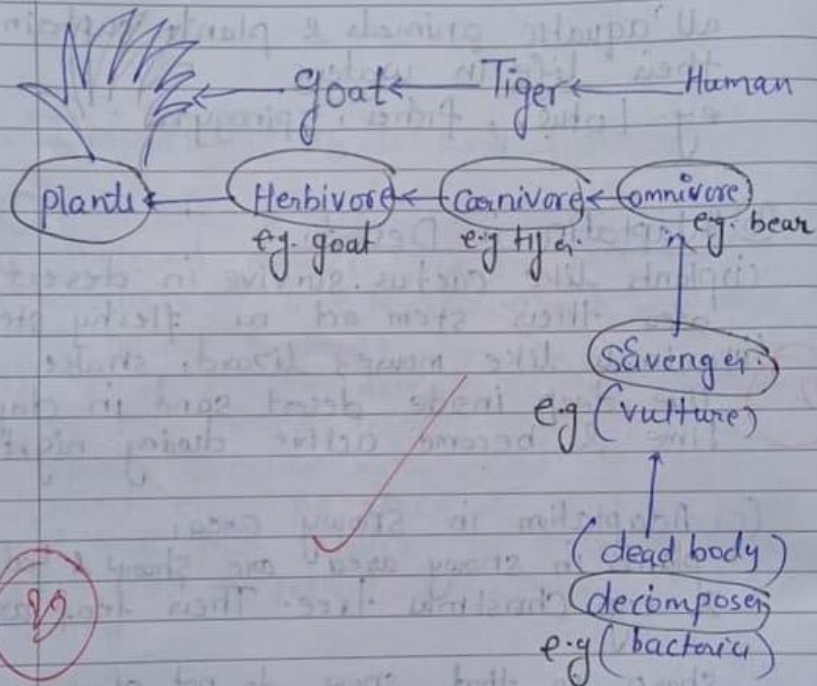 goat Tiger Human
plants Herbivore Carnivore omnivore
e.g. goat e.g tiger e.g. bear
Scavenger
e.g (vulture)
(dead body)
decomposer
e.g (bacteria)